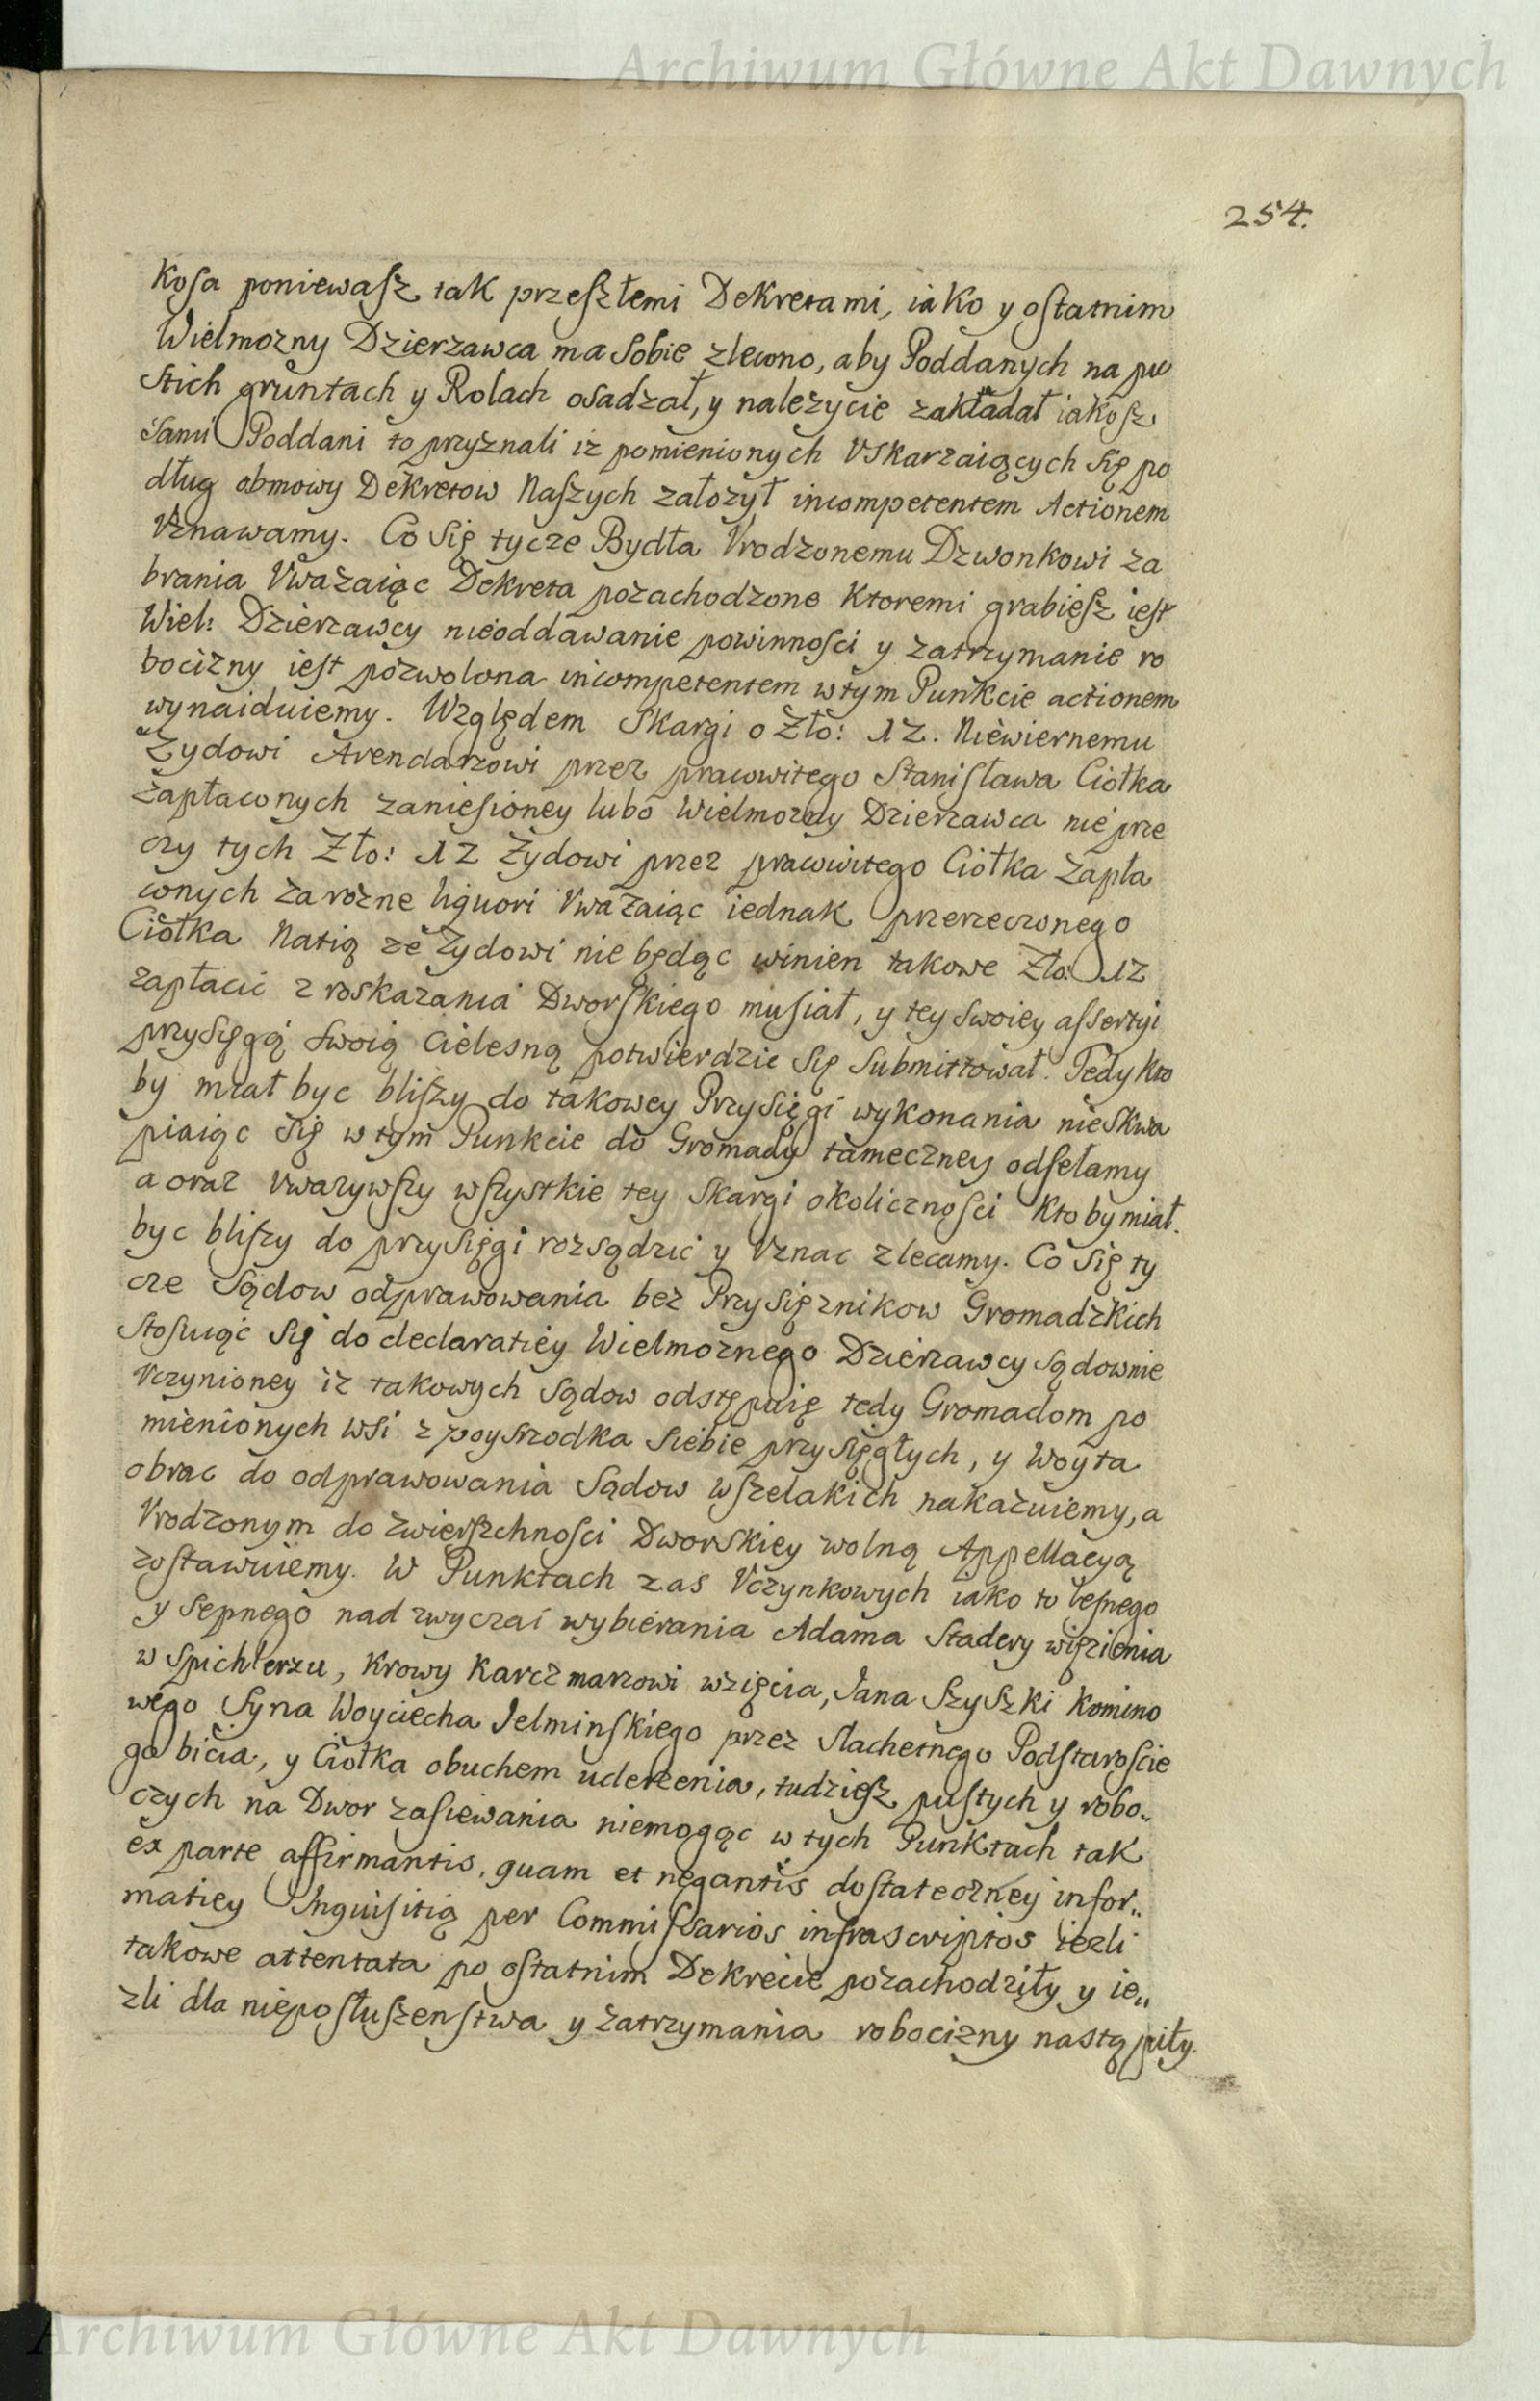 Archiwum Główne Akt Dawnych
254.
Kosa poniewasz tak przeszłemi Dekretami, iako y ostatnim
Wielmozny Dzierzawca ma sobie zlecono, aby Poddanych na pu
stich gruntach y Rolach osadzał, y nalezycie zakładał iakosz
sami Poddani to przyznali iz pomienionych Vskarzaiących się po
dług obmowy Dekretow Naszych załozył incompetentem Actionem
Vznawamy. Co się tycze Bydła Vrodzonemu Dzwonkowi za
brania Vwazaiąc Dekreta pozachodzone Ktoremi grabiesz iest
Wiel: Dzierzawcy nieoddawanie powinnosci y zatrzymanie ro
bocizny iest pozwolona incompetentem w tym Punkcie actionem
wynaiduiemy. Względem Skargi o Zło: 12. Niewiernemu
Zydowi Arendarzowi przez pracowitego Stanisława Ciołka
zapłaconych zaniesioney lubo Wielmozny Dzierzawca nie prze
czy tych Zło: 12 Zydowi przez pracowitego Ciołka zapła
conych za rozne liquori Vwazaiąc iednak przerzeczonego
Ciołka Natią ze Zydowi nie będąc winien takowe Zło: 12
zapłacic z roskazania Dworskiego musiał, y tey swoiey assertyi
przysięgą swoią cielesną potwierdzic się submittował. Tedy kto
by miał byc bliszy do takowey Przysięgi wykonania nieskwa
piaiąc się w tym Punkcie do Gromady tameczney odsełamy
a oraz Vwazywszy wszystkie tey Skargi okolicznosci Kto by miał
byc bliszy do przysięgi rozsądzic y Vznac zlecamy. Co się ty
cze Sądow odprawowania bez Przysięznikow Gromadzkich
stosuiąc się do declaratiey Wielmoznego Dzierzawcy sądownie
Vczynioney iz takowych sądow odstępuię tedy Gromadom po
mienionych wsi z posyrzodka siebie przysięgłych, y Woyta
obrac do odprawowania Sądow wszelakich nakazuiemy, a
Vrodzonym do zwierszchnosci Dworskiey wolną Appellacyą
zostawuiemy. W Punktach zas Vczynkowych iako to lesnego
y sepnego nad zwyczai wybierania Adama Stadery więzienia
w Spichlerzu, Krowy Karczmarzowi wzięcia, Jana Szyszki Komino
wego Syna Woyciecha Jelminskiego przez Slachetnego Podstaroscie
go bicia, y Ciołka obuchem uderzenia, tudziesz pustych y robo„
czych na Dwor zasiewania niemogąc w tych Punktach tak
ex parte affirmantis, quam et negantis dostateczney infor„
matiey Inquisitią per Commissarios infrascriptos iezli
takowe attentata po ostatnim Dekrecie pozachodziły y ie„
zli dla nieposłuszenstwa y zatrzymania robocizny nastąpiły.
Archiwum Główne Akt Dawnych